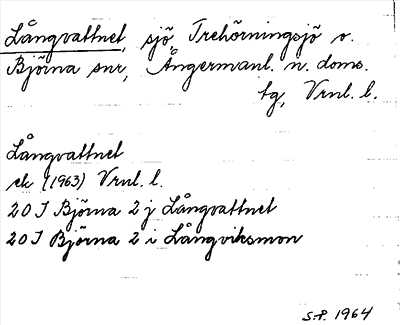 Långvattnet, sjö, Trehörningsjö o.
Björna snr, Ångermanl. n. doms.
tg, Vrnl. l.
Långvattnet
ek (1963) Vrnl. l.
20 J Björna 2 j Långvattnet
20 J Björna 2 i Långviksmon
S.P. 1964